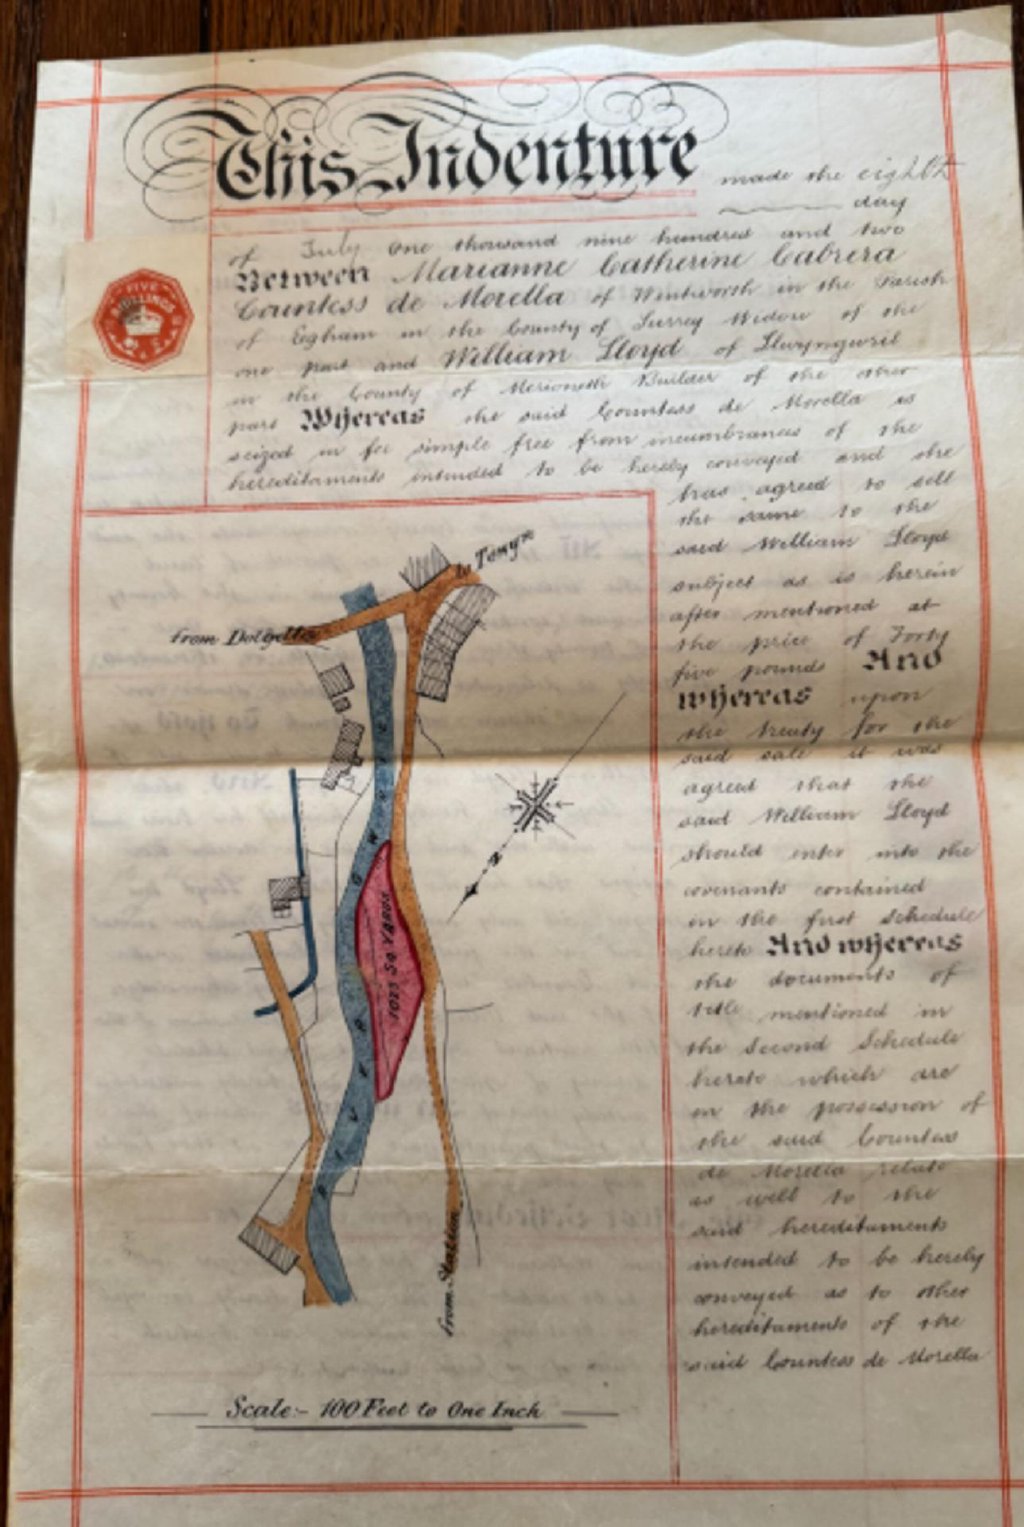 This Indenture made the eighth
day
of July One thousand nine hundred and two
Between Marianne Catherine Cabrera
Countess de Morella of Wentworth in the Parish
of Egham in the County of Surrey Widow of the
one part and William Lloyd of Llwyngwril
in the County of Merioneth Builder of the other
part Whereas the said Countess de Morella is
seized in fee simple free from incumbrances of the
hereditaments intended to be hereby conveyed and she
has agreed to sell
the same to the
said William Lloyd
subject as is herein
after mentioned at
the price of Forty
five pounds And
whereas upon
the treaty for the
said sale it was
agreed that the
said William Lloyd
should enter into the
covenants contained
in the first Schedule
hereto And whereas
the documents of
title mentioned in
the Second Schedule
hereto which are
in the possession of
the said Countess
de Morella relate
as well to the
said hereditaments
intended to be hereby
conveyed as to other
hereditaments of the
said Countess de Morella
FIVE
SHILLINGS
to Towyn
From Dolgelley
N
1025 SQ YARDS
RIVER
From Station
Scale:- 100 Feet to One Inch